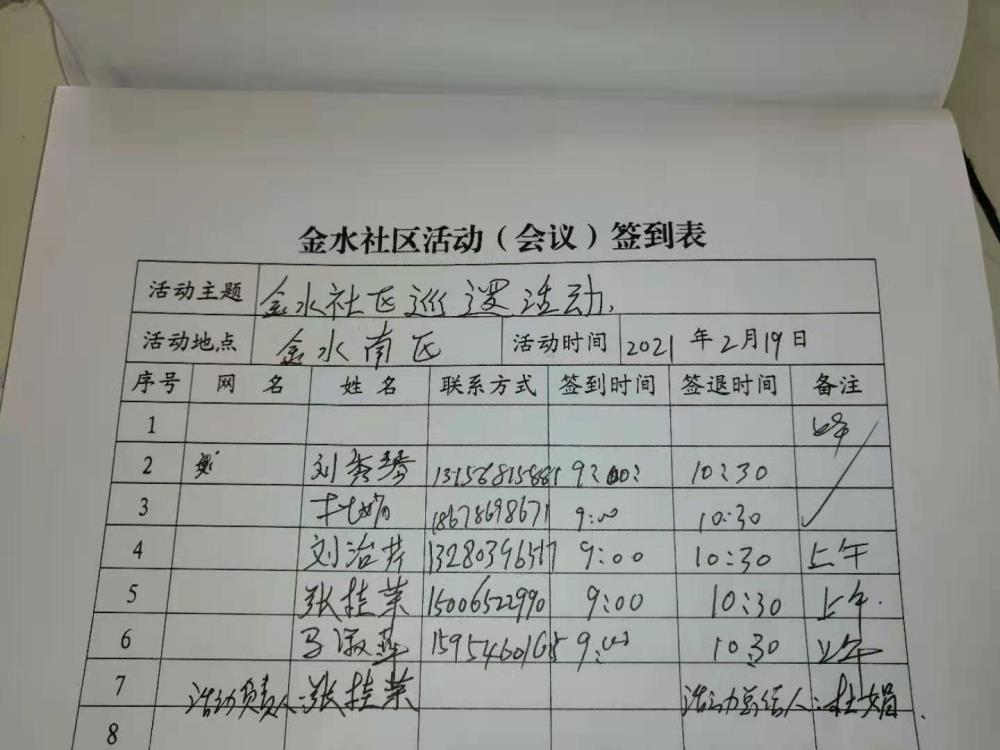 金水社区活动（会议）签到表
活动主题 金水社区巡逻活动
活动地点 金水南区 活动时间 2021年2月19日
序号 网名 姓名 联系方式 签到时间 签退时间 备注
1
2 刘秀琴 9:00 10:30
3 杜娟 18678698671 9:00 10:30
4 刘治芹 13280396517 9:00 10:30 上午
5 张桂荣 15006522990 9:00 10:30 上午
6 15954601615 9:00 10:30 上午
7 活动负责人:张桂荣 活动总结人:杜娟
8